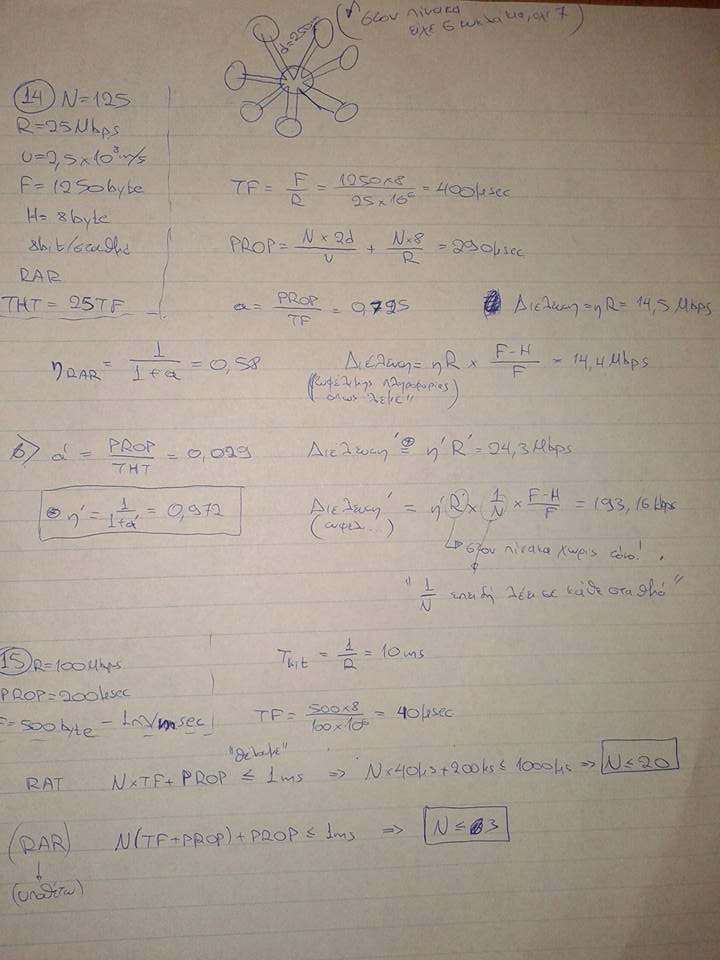 (στον πίνακα
είχε 6 κυκλάκια, όχι 7)
d=250m
14 N=125
R=25Mbps
υ=2,5×10⁸m/s
F=1250byte
H=8byte
8bit/σταθμό
RAR
THT=25TF
TF = F/R = 1250×8/25×10⁶ = 400μsec
PROP = N×2d/υ + N×8/R = 290μsec
a = PROP/TF = 0,725
Διέλευση = ηR = 14,5 Mbps
η_RAR = 1/1+a = 0,58
Διέλευση = ηR × F-H/F = 14,4Mbps
(ωφέλιμης πληροφορίας)
όπως λέμε"
β) a' = PROP/THT = 0,029
Διέλευση' = η'R' = 24,3Mbps
η' = 1/1+a' = 0,972
Διέλευση' = η'(R')×(1/N)×F-H/F = 193,16kbps
(ωφελ...)
στον πίνακα χωρίς τόνο!
"1/N επειδή λέει σε κάθε σταθμό"
15 R=100Mbps
PROP=200μsec
F=500byte - 1μν/msec
T_bit = 1/R = 10ms
TF = 500×8/100×10⁶ = 40μsec
"θέλουμε"
RAT N×TF+PROP ≤ 1ms ⇒ N×40μs+200μs≤1000μs ⇒ N≤20
(RAR) N(TF+PROP)+PROP ≤ 1ms ⇒ N≤3
(υποθέτω)